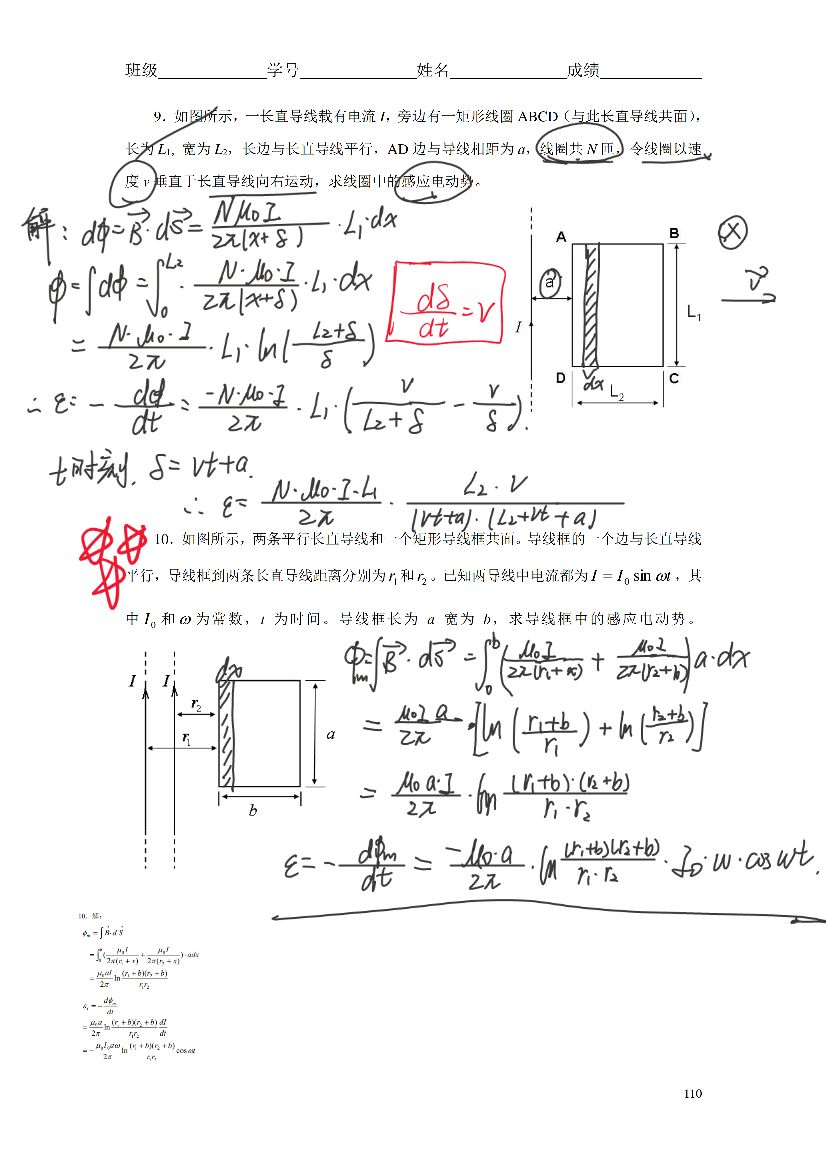 班级 学号 姓名 成绩
9．如图所示，一长直导线载有电流 I，旁边有一矩形线圈 ABCD（与此长直导线共面），
长为 L₁, 宽为 L₂，长边与长直导线平行，AD 边与导线相距为 a，线圈共 N 匝，令线圈以速
度 v 垂直于长直导线向右运动，求线圈中的感应电动势。
解: dϕ=B⃗·dS⃗= Nμ₀I/2π(x+δ) ·L₁·dx
ϕ=∫dϕ=∫₀^L₂ N·μ₀·I/2π(x+δ) ·L₁·dx
= N·μ₀·I/2π ·L₁·ln(L₂+δ/δ)
dδ/dt=v
∴ ε=-dϕ/dt= -N·μ₀·I/2π ·L₁·(v/L₂+δ - v/δ).
t时刻, δ=vt+a.
∴ ε= N·μ₀·I·L₁/2π · L₂·v/(vt+a)·(L₂+vt+a)
A B
a
I
L₁
D C
dx
L₂
X
v⃗
10．如图所示，两条平行长直导线和一个矩形导线框共面。导线框的一个边与长直导线
平行，导线框到两条长直导线距离分别为r₁和r₂。已知两导线中电流都为I = I₀ sin ωt，其
中 I₀ 和 ω 为常数，t 为时间。导线框长为 a 宽为 b，求导线框中的感应电动势。
I I
dx
r₂
r₁
a
b
ϕₘ=∫B⃗·dS⃗=∫₀^b(μ₀I/2π(r₁+x) + μ₀I/2π(r₂+b))a·dx
= μ₀I a/2π ·[ln(r₁+b/r₁)+ln(r₂+b/r₂)]
= μ₀a·I/2π ·ln (r₁+b)·(r₂+b)/r₁·r₂
ε=-dϕₘ/dt= -μ₀·a/2π ·ln (r₁+b)(r₂+b)/r₁·r₂ ·I₀·w·cos wt.
10．解：
ϕₘ=∫B⃗·dS⃗
=∫₀^b(μ₀I/2π(r₁+x)+μ₀I/2π(r₂+x))·adx
=μ₀aI/2π ln (r₁+b)(r₂+b)/r₁r₂
εᵢ=-dϕₘ/dt
=μ₀a/2π ln (r₁+b)(r₂+b)/r₁r₂ dI/dt
=-μ₀I₀aω/2π ln (r₁+b)(r₂+b)/r₁r₂ cos ωt
110